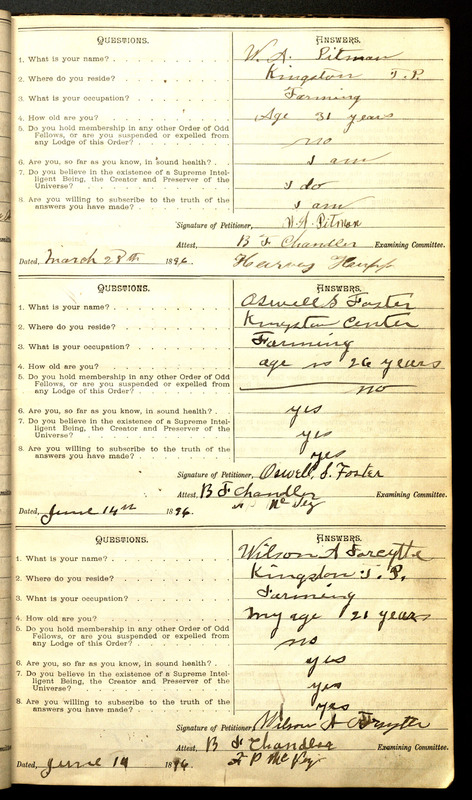 QUESTIONS. ANSWERS.
1. What is your name? W. A. Pitman
2. Where do you reside? Kingston T.P.
3. What is your occupation? Farming
4. How old are you? Age 31 years
5. Do you hold membership in any other Order of Odd
Fellows, or are you suspended or expelled from
any Lodge of this Order? no
6. Are you, so far as you know, in sound health? I am
7. Do you believe in the existence of a Supreme Intel-
ligent Being, the Creator and Preserver of the
Universe? I do
8. Are you willing to subscribe to the truth of the
answers you have made? I am
Signature of Petitioner, W. A. Pitman
Attest, B F Chandler Examining Committee.
Dated, March 28th 1896. Harvey
QUESTIONS. ANSWERS.
1. What is your name? Oswell S Foster
2. Where do you reside? Kingston Center
3. What is your occupation? Farming
4. How old are you? age is 26 years
5. Do you hold membership in any other Order of Odd
Fellows, or are you suspended or expelled from
any Lodge of this Order? no
6. Are you, so far as you know, in sound health? yes
7. Do you believe in the existence of a Supreme Intel-
ligent Being, the Creator and Preserver of the
Universe? yes
8. Are you willing to subscribe to the truth of the
answers you have made? yes
Signature of Petitioner, Oswell, S. Foster
Attest, B F Chandler Examining Committee.
Dated, June 14th 1896.
QUESTIONS. ANSWERS.
1. What is your name? Wilson A Forcytte
2. Where do you reside? Kingston T. P.
3. What is your occupation? Farming
4. How old are you? my age 21 years
5. Do you hold membership in any other Order of Odd
Fellows, or are you suspended or expelled from
any Lodge of this Order? no
6. Are you, so far as you know, in sound health? yes
7. Do you believe in the existence of a Supreme Intel-
ligent Being, the Creator and Preserver of the
Universe? yes
8. Are you willing to subscribe to the truth of the
answers you have made? yes
Signature of Petitioner, Wilson A
Attest, B F Chandler Examining Committee.
Dated, June 14 1896.